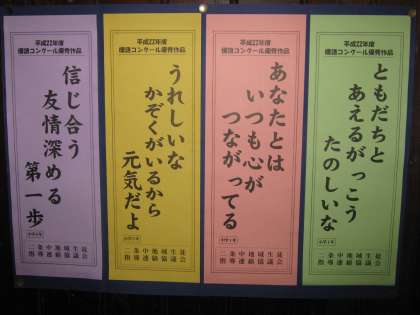 平成22年度
標語コンクール優秀作品
ともだちと
あえるがっこう
たのしいな
二条中地域生徒
指導連絡協議会
平成22年度
標語コンクール優秀作品
あなたとは
いつも心が
つながってる
二条中地域生徒
指導連絡協議会
平成22年度
標語コンクール優秀作品
うれしいな
かぞくがいるから
元気だよ
二条中地域生徒
指導連絡協議会
平成22年度
標語コンクール優秀作品
信じ合う
友情深める
第一歩
二条中地域生徒
指導連絡協議会